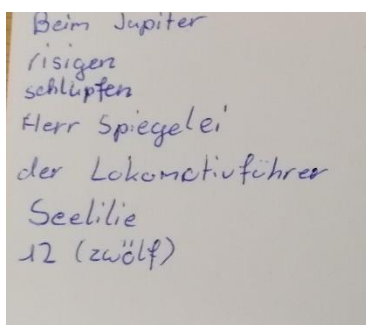 Beim Jupiter
risigen
schlüpfen
Herr Spiegelei
der Lokomotivführer
Seelilie
12 (zwölf)